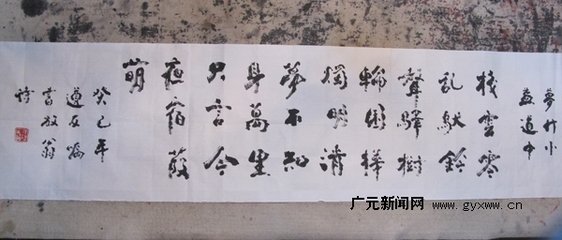 夢行小
益道中
棧雲零
亂馱鈴
聲驛樹
輪囷樺
燭明清
夢不知
身萬里
只言今
夜宿葭
萌
癸巳年
遵友嘱
書放翁
诗
广元新闻网
www.gyxww.cn